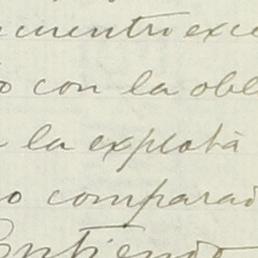 cuentro exce
o con la obl
la explota
o comparad
Entiendo